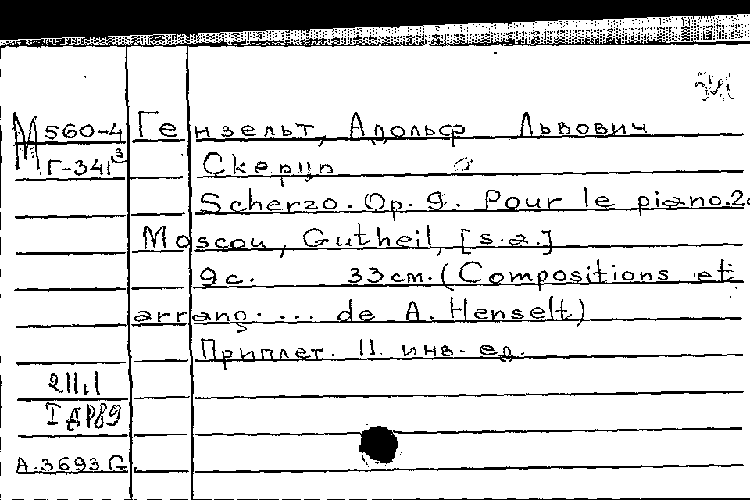 М 560-4 Гензельт, Адольф Львович
Г-341³ Скерцо
Scherzo. Op. 9. Pour le piano. 2
Moscou, Gutheil, [s.a.]
9 с. 33 см. (Compositions et
arrang. ... de A. Henselt)
Приплет. II. инв. ед.
211,1
I др89
A.3693 G.